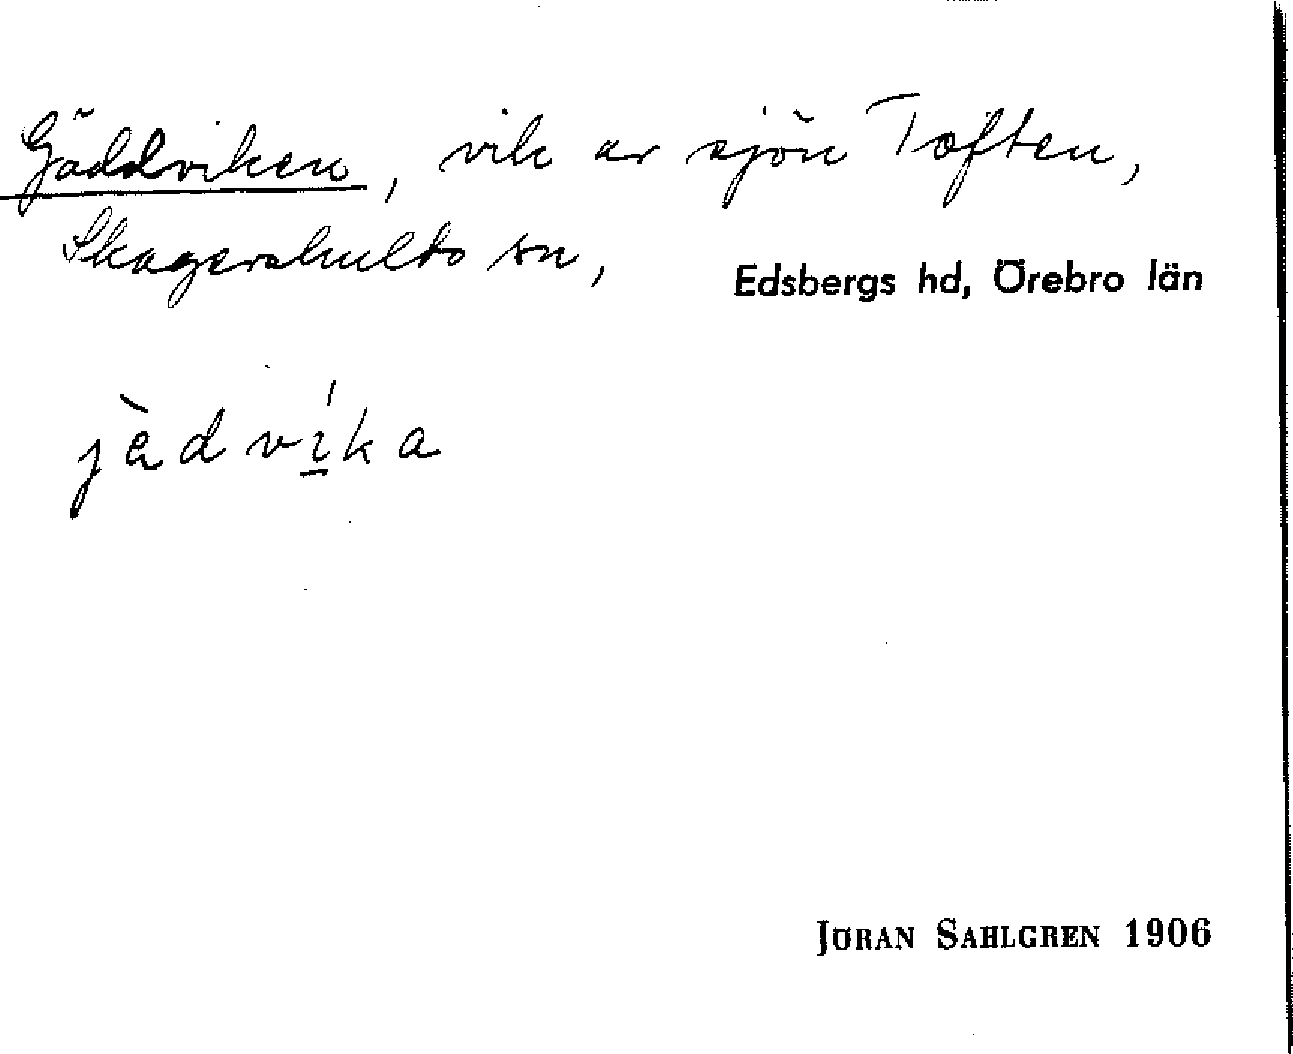 Gäddviken, vik av sjön Toften,
Skagershults sn, Edsbergs hd, Örebro län
jàdvíka
JÖRAN SAHLGREN 1906